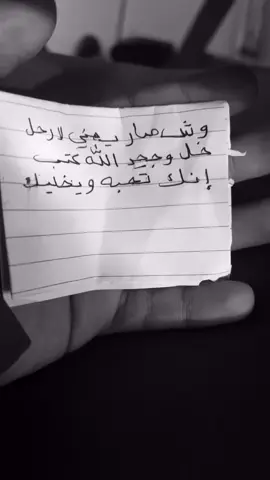 وش صار يعني لا رحل
خل وجحد الله كتب
إنك تحبه ويخليك